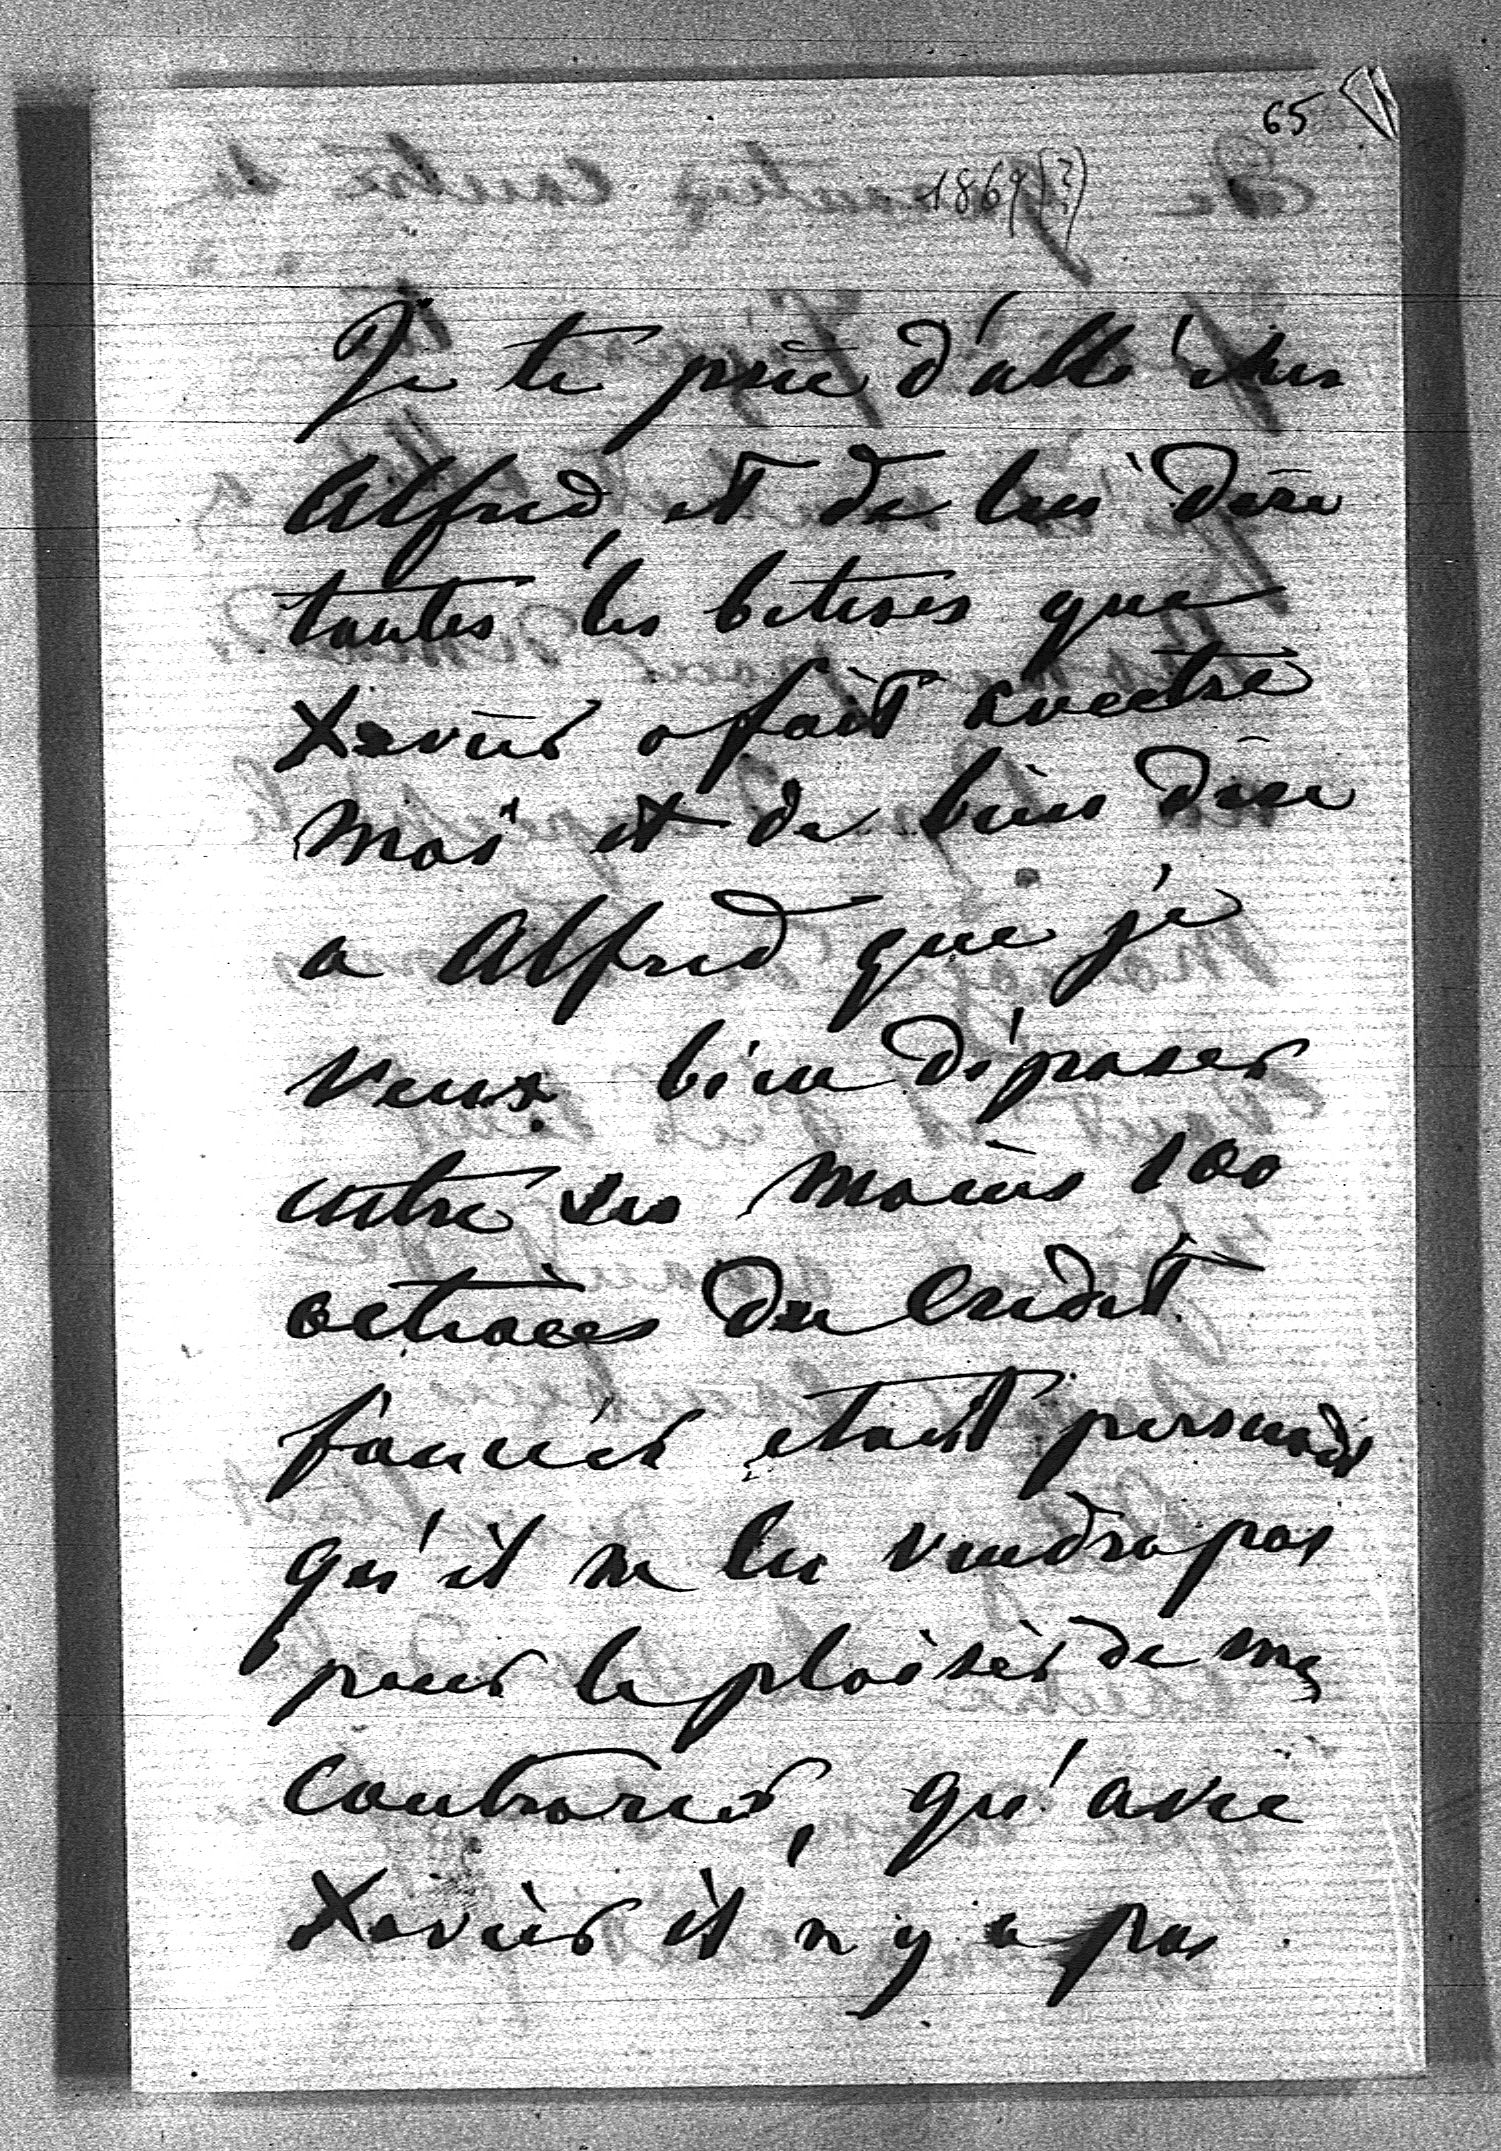 65
1869 (?)
Je te prie d'allé chez
Alfred, et de lui dire
toutes les betises que
Xavier a fait
moi et de bien dire
a Alfred que je
veux bien déposer
entre ses moins 100
actioces du Credit
foncier etant persuadé
qu'il ne les vendra pas
pour le plaisir de me
contrarier, qu'avec
Xavier il n y a pas